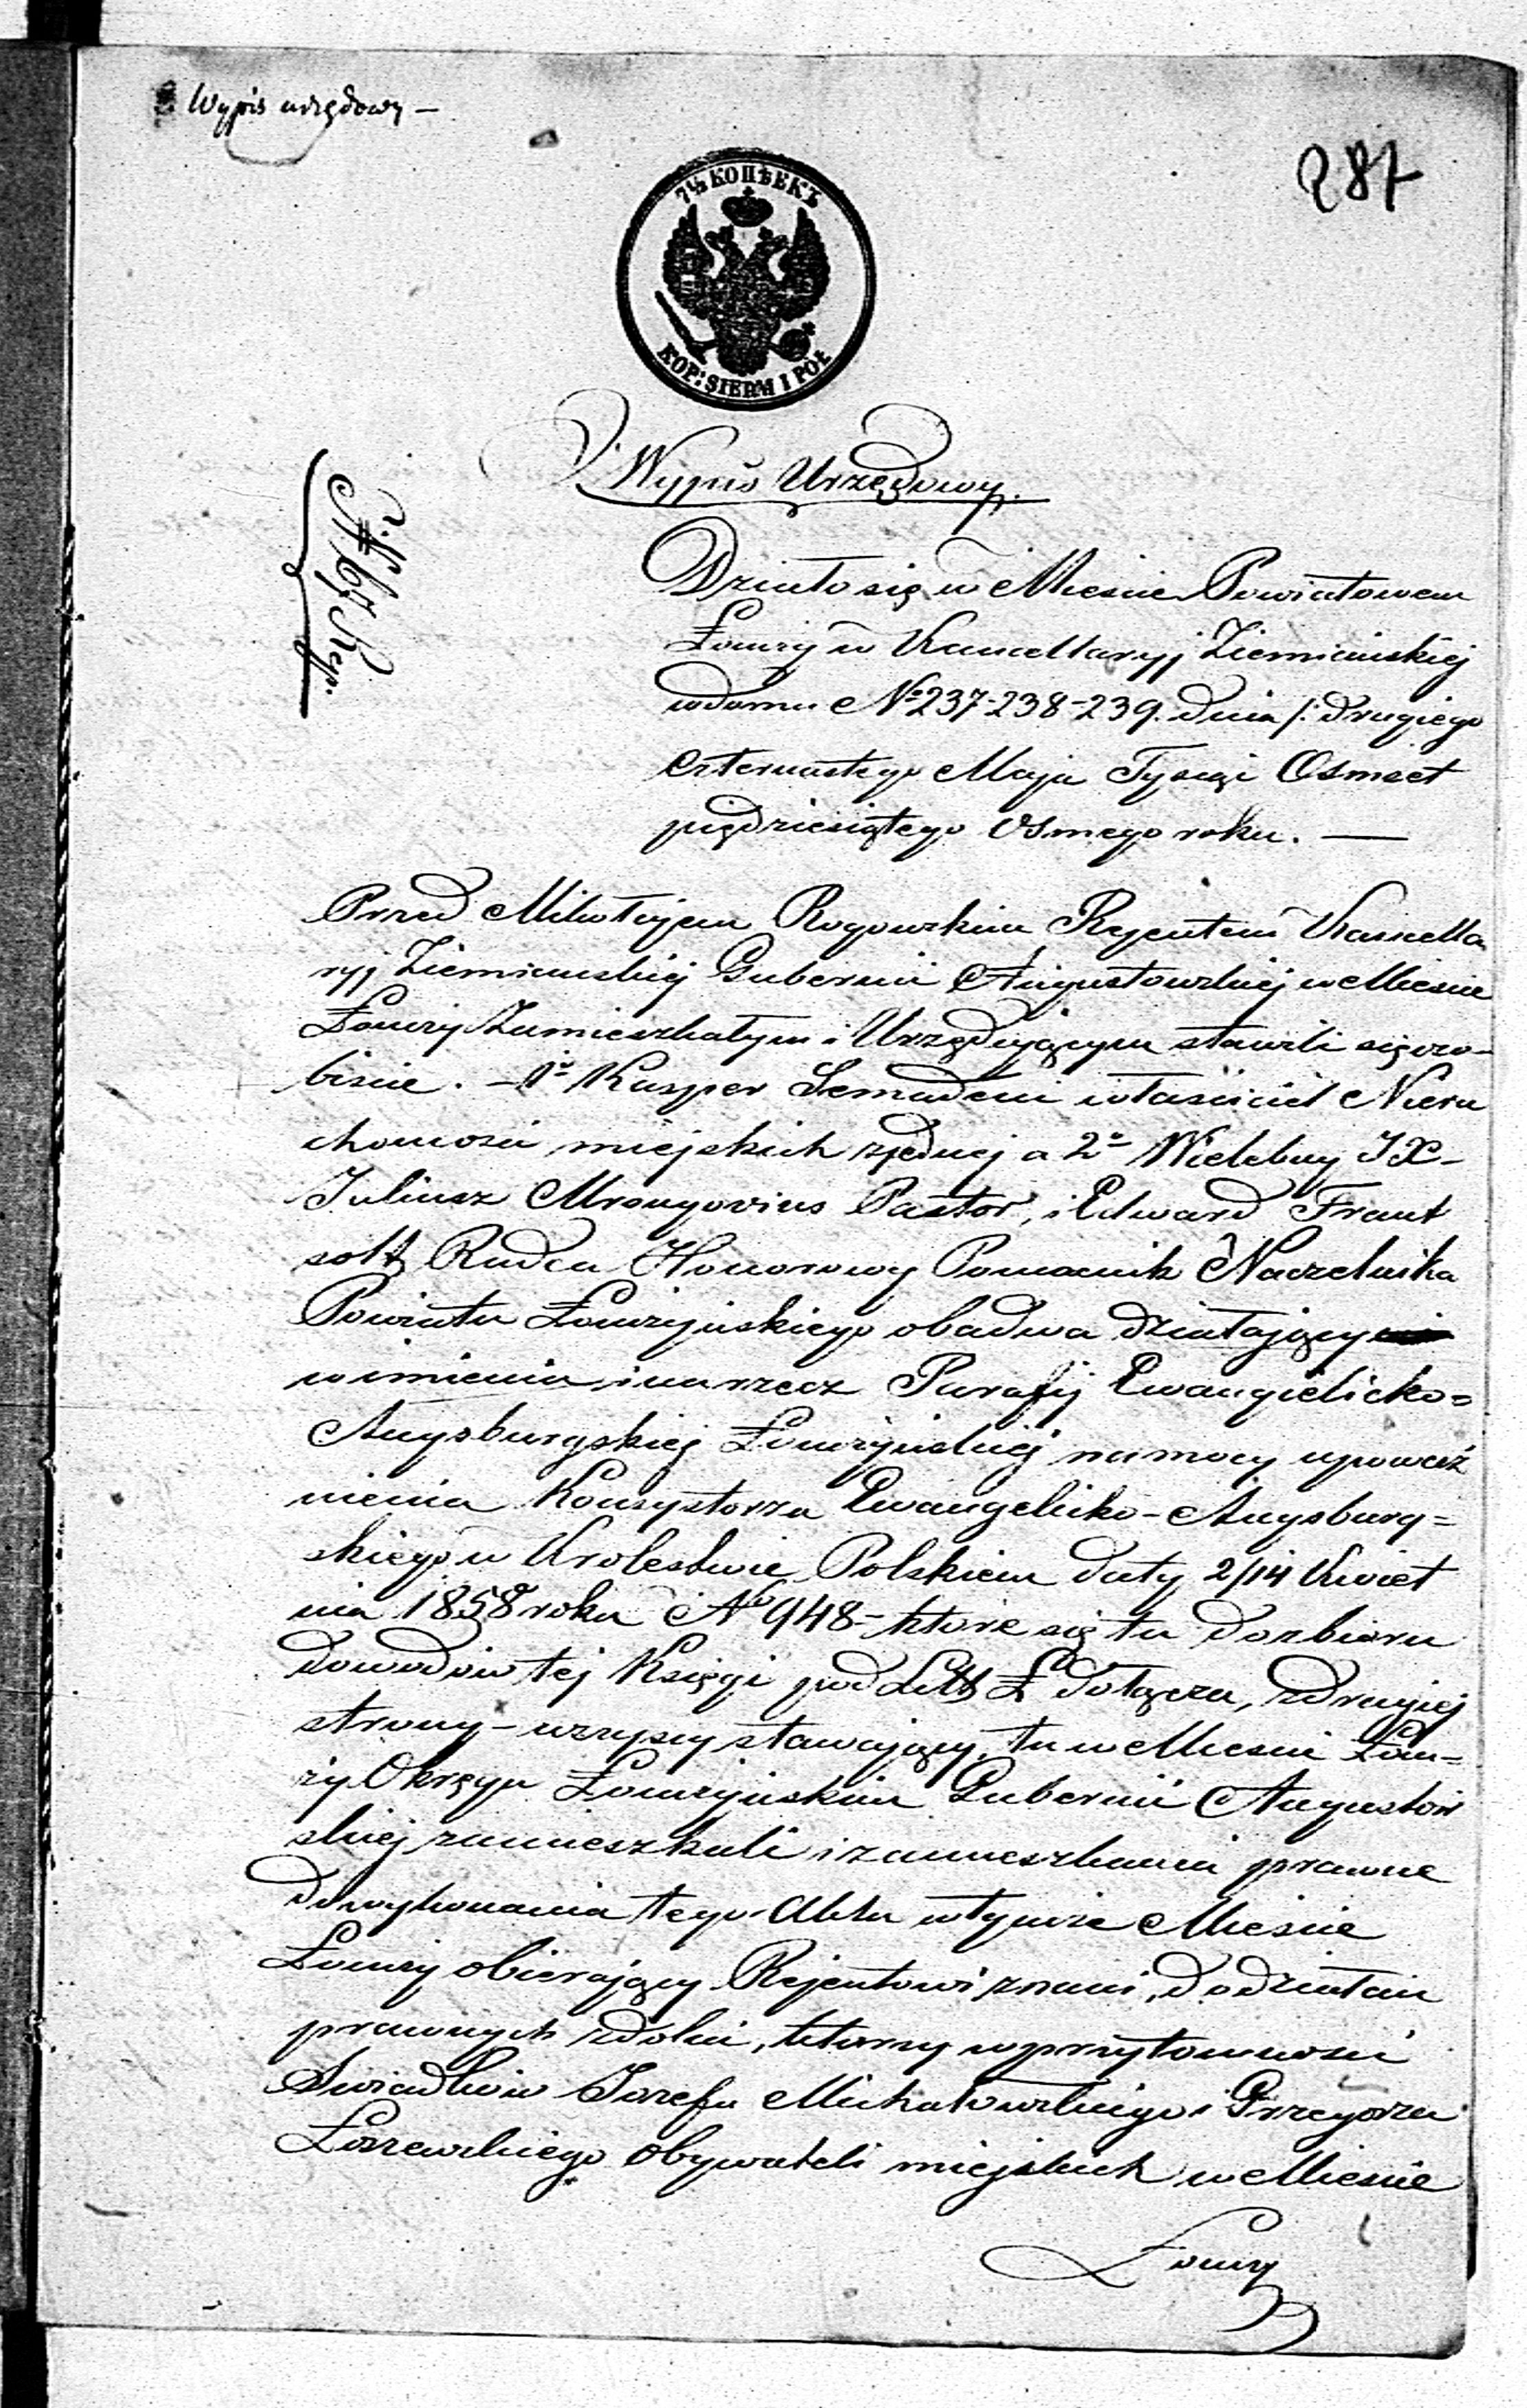 Wypis urzędowy –
287
7½ КОПѢЕКЪ
KOP: SIERM I PÓŁ
Wypis Urzędowy.
№ 67 Rep.
Działo się w Mieście Powiatowem
Łomży w Kancellaryj Ziemiańskiéj
w domu № 237-238-239. dnia /: drugiego
czternastego Maja Tysiąc Osmset
pięździesiątego Osmego roku. —
Przed Rogowskim Rejentem Kancella
ryj Ziemiańskiéj Gubernii Augustowskiéj w Mieście
Łomży Zamieszkałym i Urzędującym stawili się oso-
biście. – 1o Kasper Semadeni właściciel Nieru
chomości miejskich z jednéj a 2o Wielebny JX-
Juliusz Mrongovius Pastor, i Edward Frant
soltz Radca Honorowy Pomocnik Naczelnika
Powiatu Łomżyńskiego obadwa działający
w imieniu i na rzecz Parafij Ewangielicko=
Augsburgskiéj Łomżyńskiéj na mocy upoważ
nienia Konsystorza Ewangelicko-Augsburg=
skiego w Krolestwie Polskiem daty 2/14 Kwiet
nia 1858 roku № 948 – ktore się tu do zbioru
dowodów téj Księgi pod Litt Ł dołącza, z drugiéj
strony – wszyscy stawający, tu w Mieście Łom=
ży Okręgu Łomżyńskim Gubernii Augustow
skiéj zamieszkali i zamieszkania prawne
do wykonania tego Aktu w tymże Mieście
Łomży obierający Rejentowi znani, do działań
prawnych zdolni, ktorzy w przytomności
Swiadków Jozefa Michałowskiego i Grzegorza
Łoszewskiego Obywateli miejskich w Mieście
Łomży